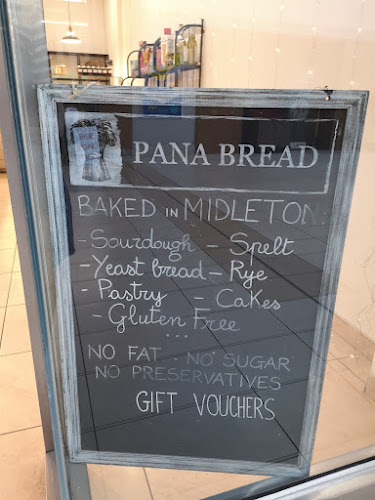 PANA BREAD
BAKED in MIDLETON:
- Sourdough - Spelt
- Yeast bread - Rye
- Pastry - Cakes
- Gluten Free
...
NO FAT . NO SUGAR
NO PRESERVATIVES
GIFT VOUCHERS